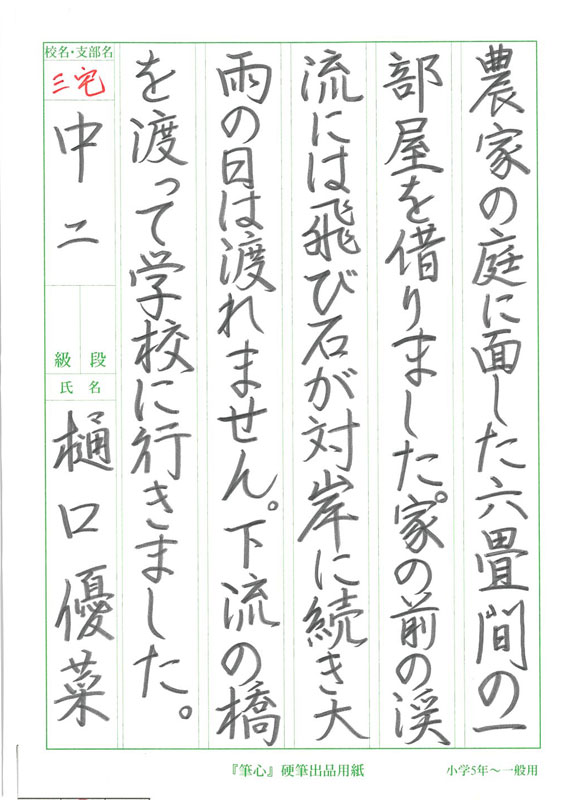 農家の庭に面した六畳間の一
部屋を借りました。家の前の渓
流には飛び石が対岸に続き大
雨の日は渡れません。下流の橋
を渡って学校に行きました。
校名・支部名
三宅
中二
段
級
氏名
樋口優菜
『筆心』硬筆出品用紙
小学5年～一般用